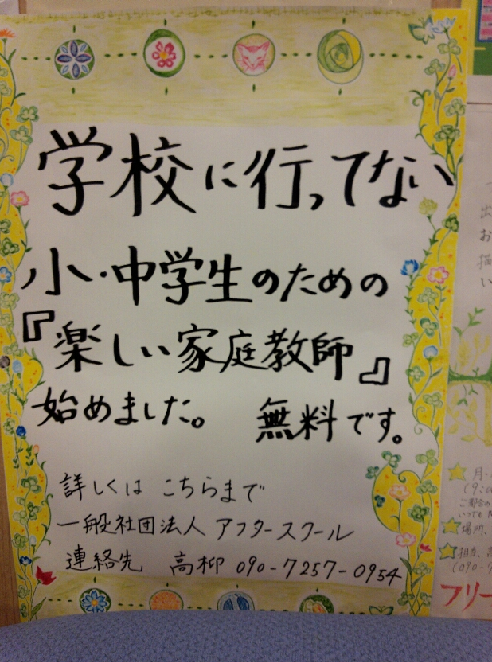 学校に行ってない
小・中学生のための
『楽しい家庭教師』
始めました。 無料です。
詳しくは こちらまで
一般社団法人 アフタースクール
連絡先 高柳 090-7257-0954
出
お
描
い
月・
場所、
フリー